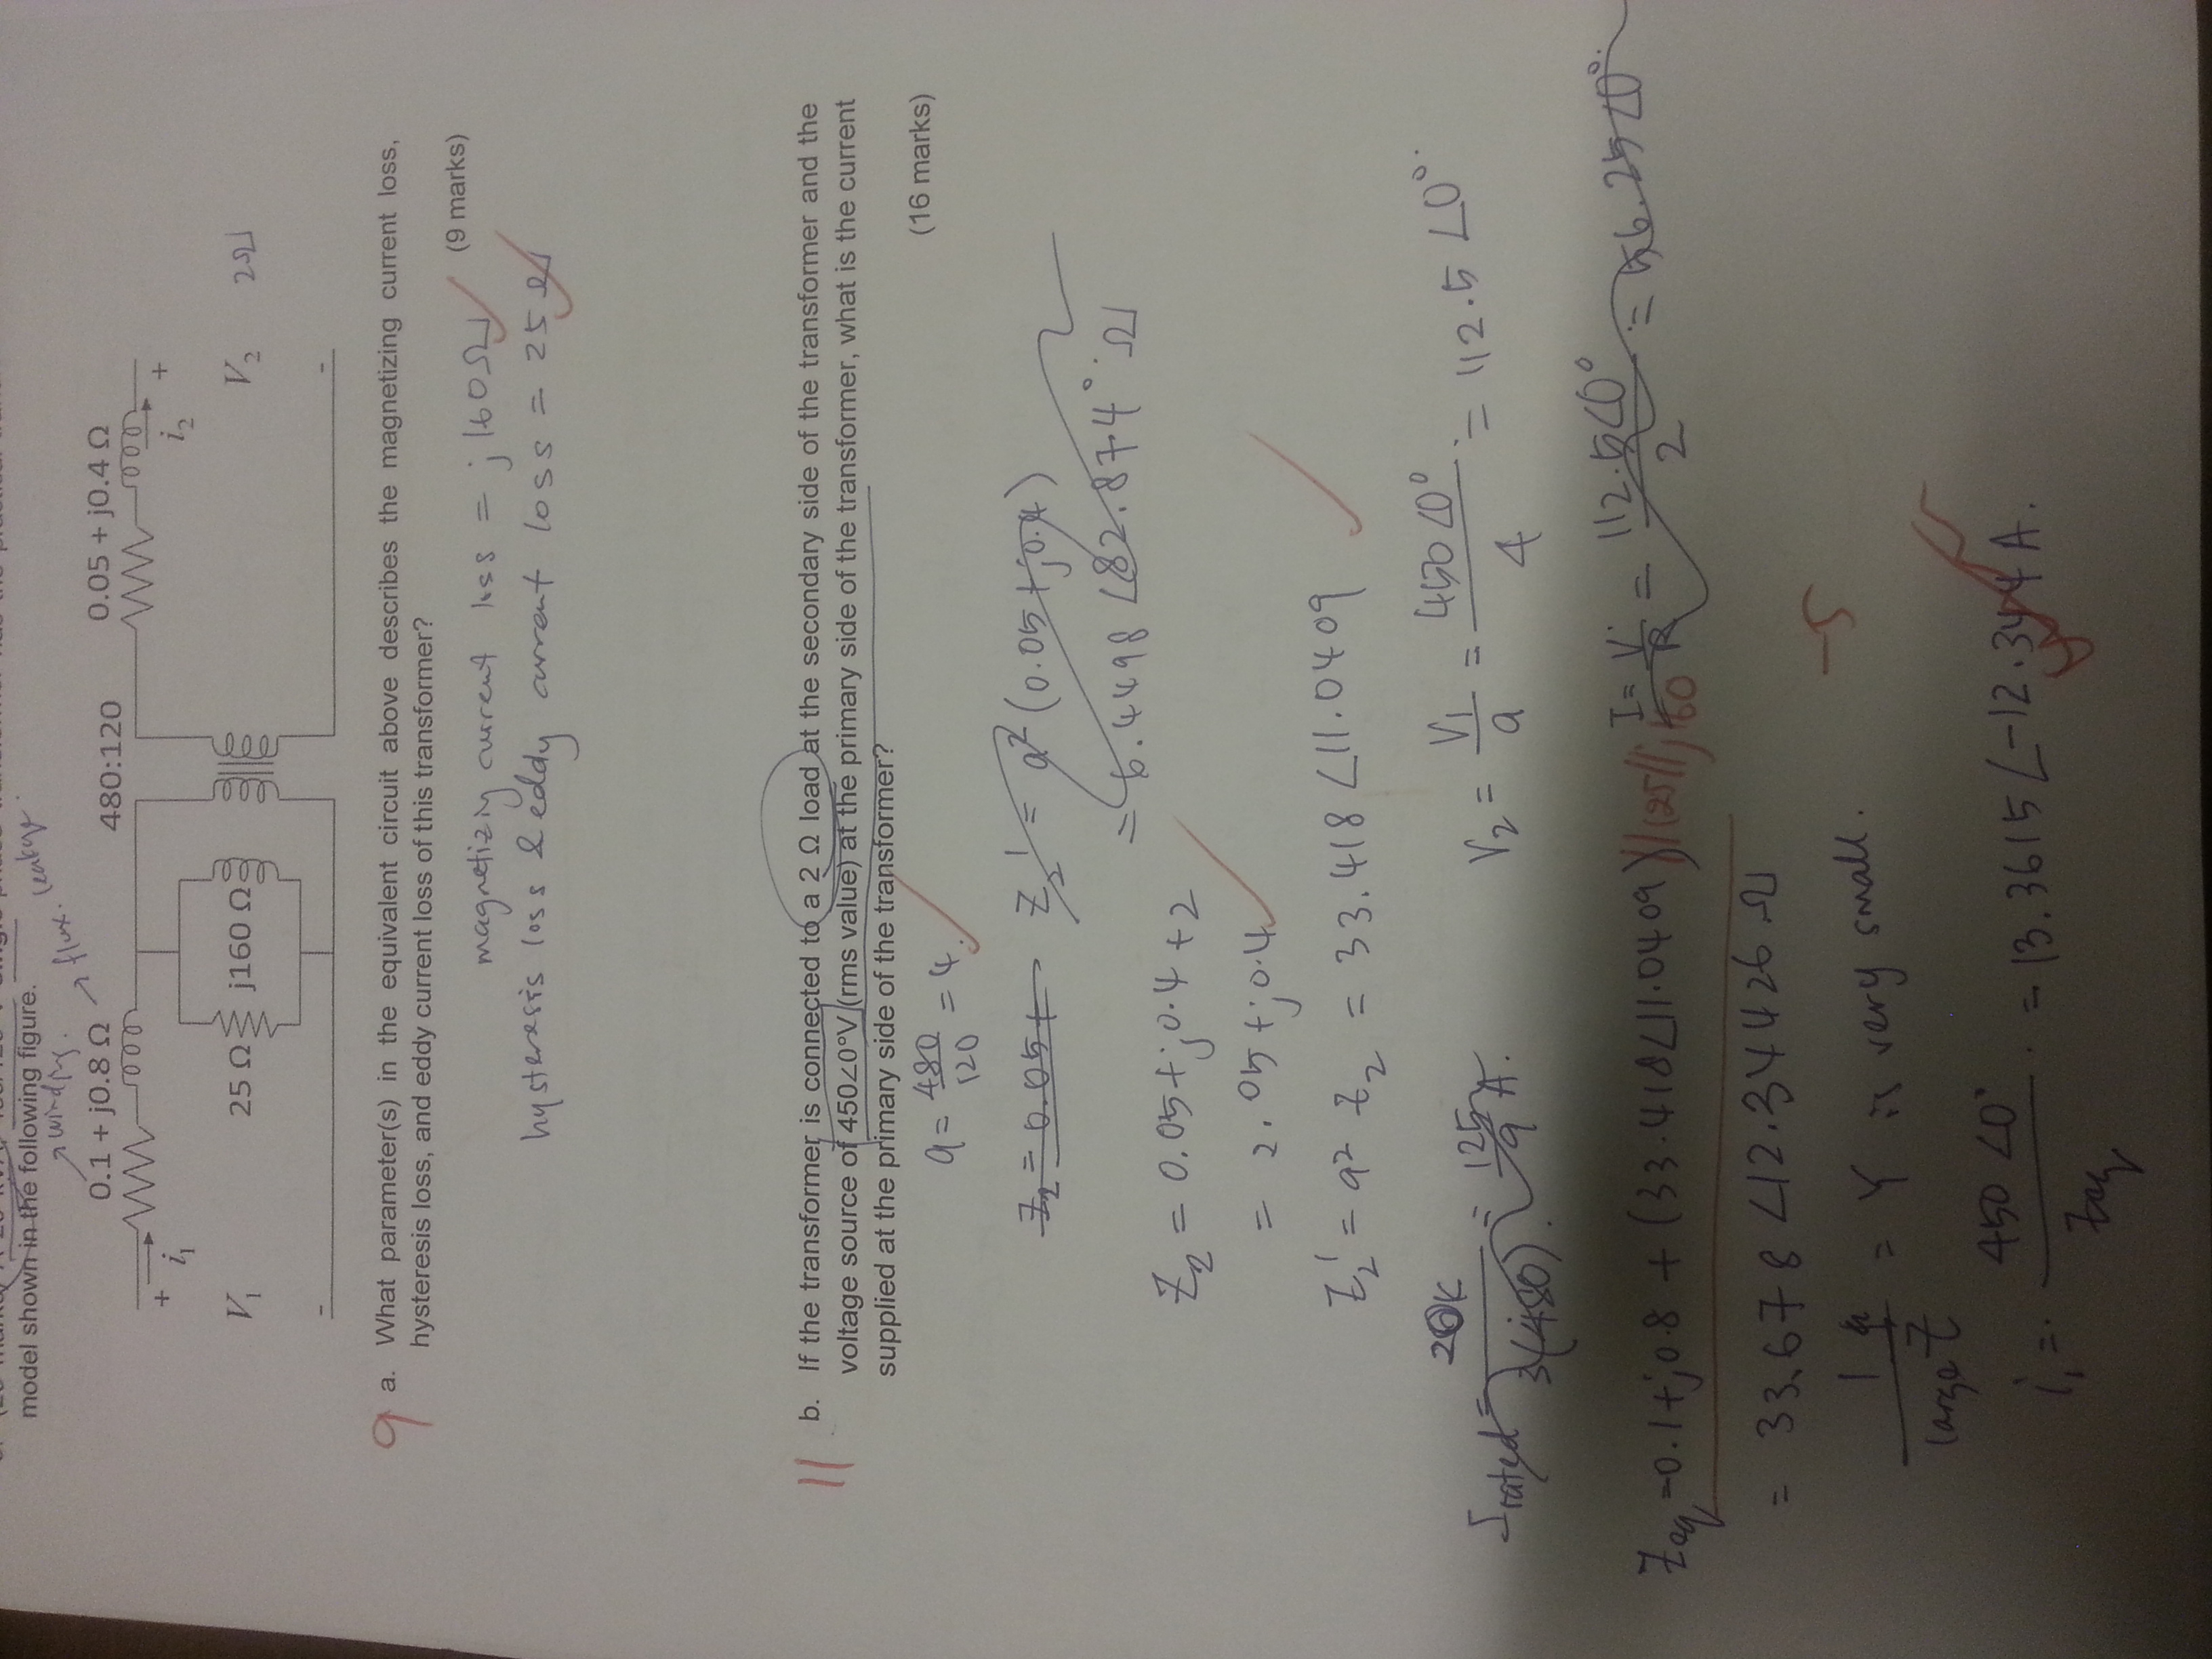 model shown in the following figure.
winding.
flux.
0.1 + j0.8 Ω
480:120
0.05 + j0.4 Ω
+
i1
i2
+
V1
25 Ω
j160 Ω
V2
2Ω
-
-
9
a. What parameter(s) in the equivalent circuit above describes the magnetizing current loss,
hysteresis loss, and eddy current loss of this transformer?
(9 marks)
magnetizing current loss = j160Ω
hysteresis loss & eddy current loss = 25Ω
11
b. If the transformer is connected to a 2 Ω load at the secondary side of the transformer and the
voltage source of 450∠0°V (rms value) at the primary side of the transformer, what is the current
supplied at the primary side of the transformer?
(16 marks)
a = 480/120 = 4.
Z2 = 0.05 +
Z2' = a² (0.05 + j0.4)
= 6.4498 ∠82.874° Ω
Z2 = 0.05 + j0.4 + 2
= 2.05 + j0.4
Z2' = a² Z2 = 33.418 ∠11.0409
Irated = 20k/3(480) = 125/9 A.
V2 = V1/a = 450∠0°/4 = 112.5 ∠0°.
I = V/R = 112.5∠0°/2 = 56.25∠0°.
Zeq = 0.1 + j0.8 + (33.418∠11.0409) //25//j160
= 33.678 ∠12.34426 Ω
-5
1/large Z = Y is very small.
i1 = 450∠0°/Zeq = 13.3615 ∠-12.344 A.